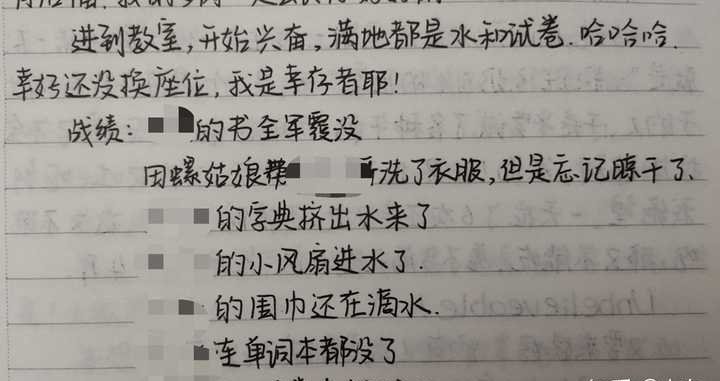 进到教室，开始兴奋，满地都是水和试卷．哈哈哈．
幸好还没换座位，我是幸存者耶！
战绩：的书全军覆没
因螺姑娘帮洗了衣服，但是忘记晾干了．
的字典挤出水来了
的小风扇进水了．
的围巾还在滴水．
连单词本都没了